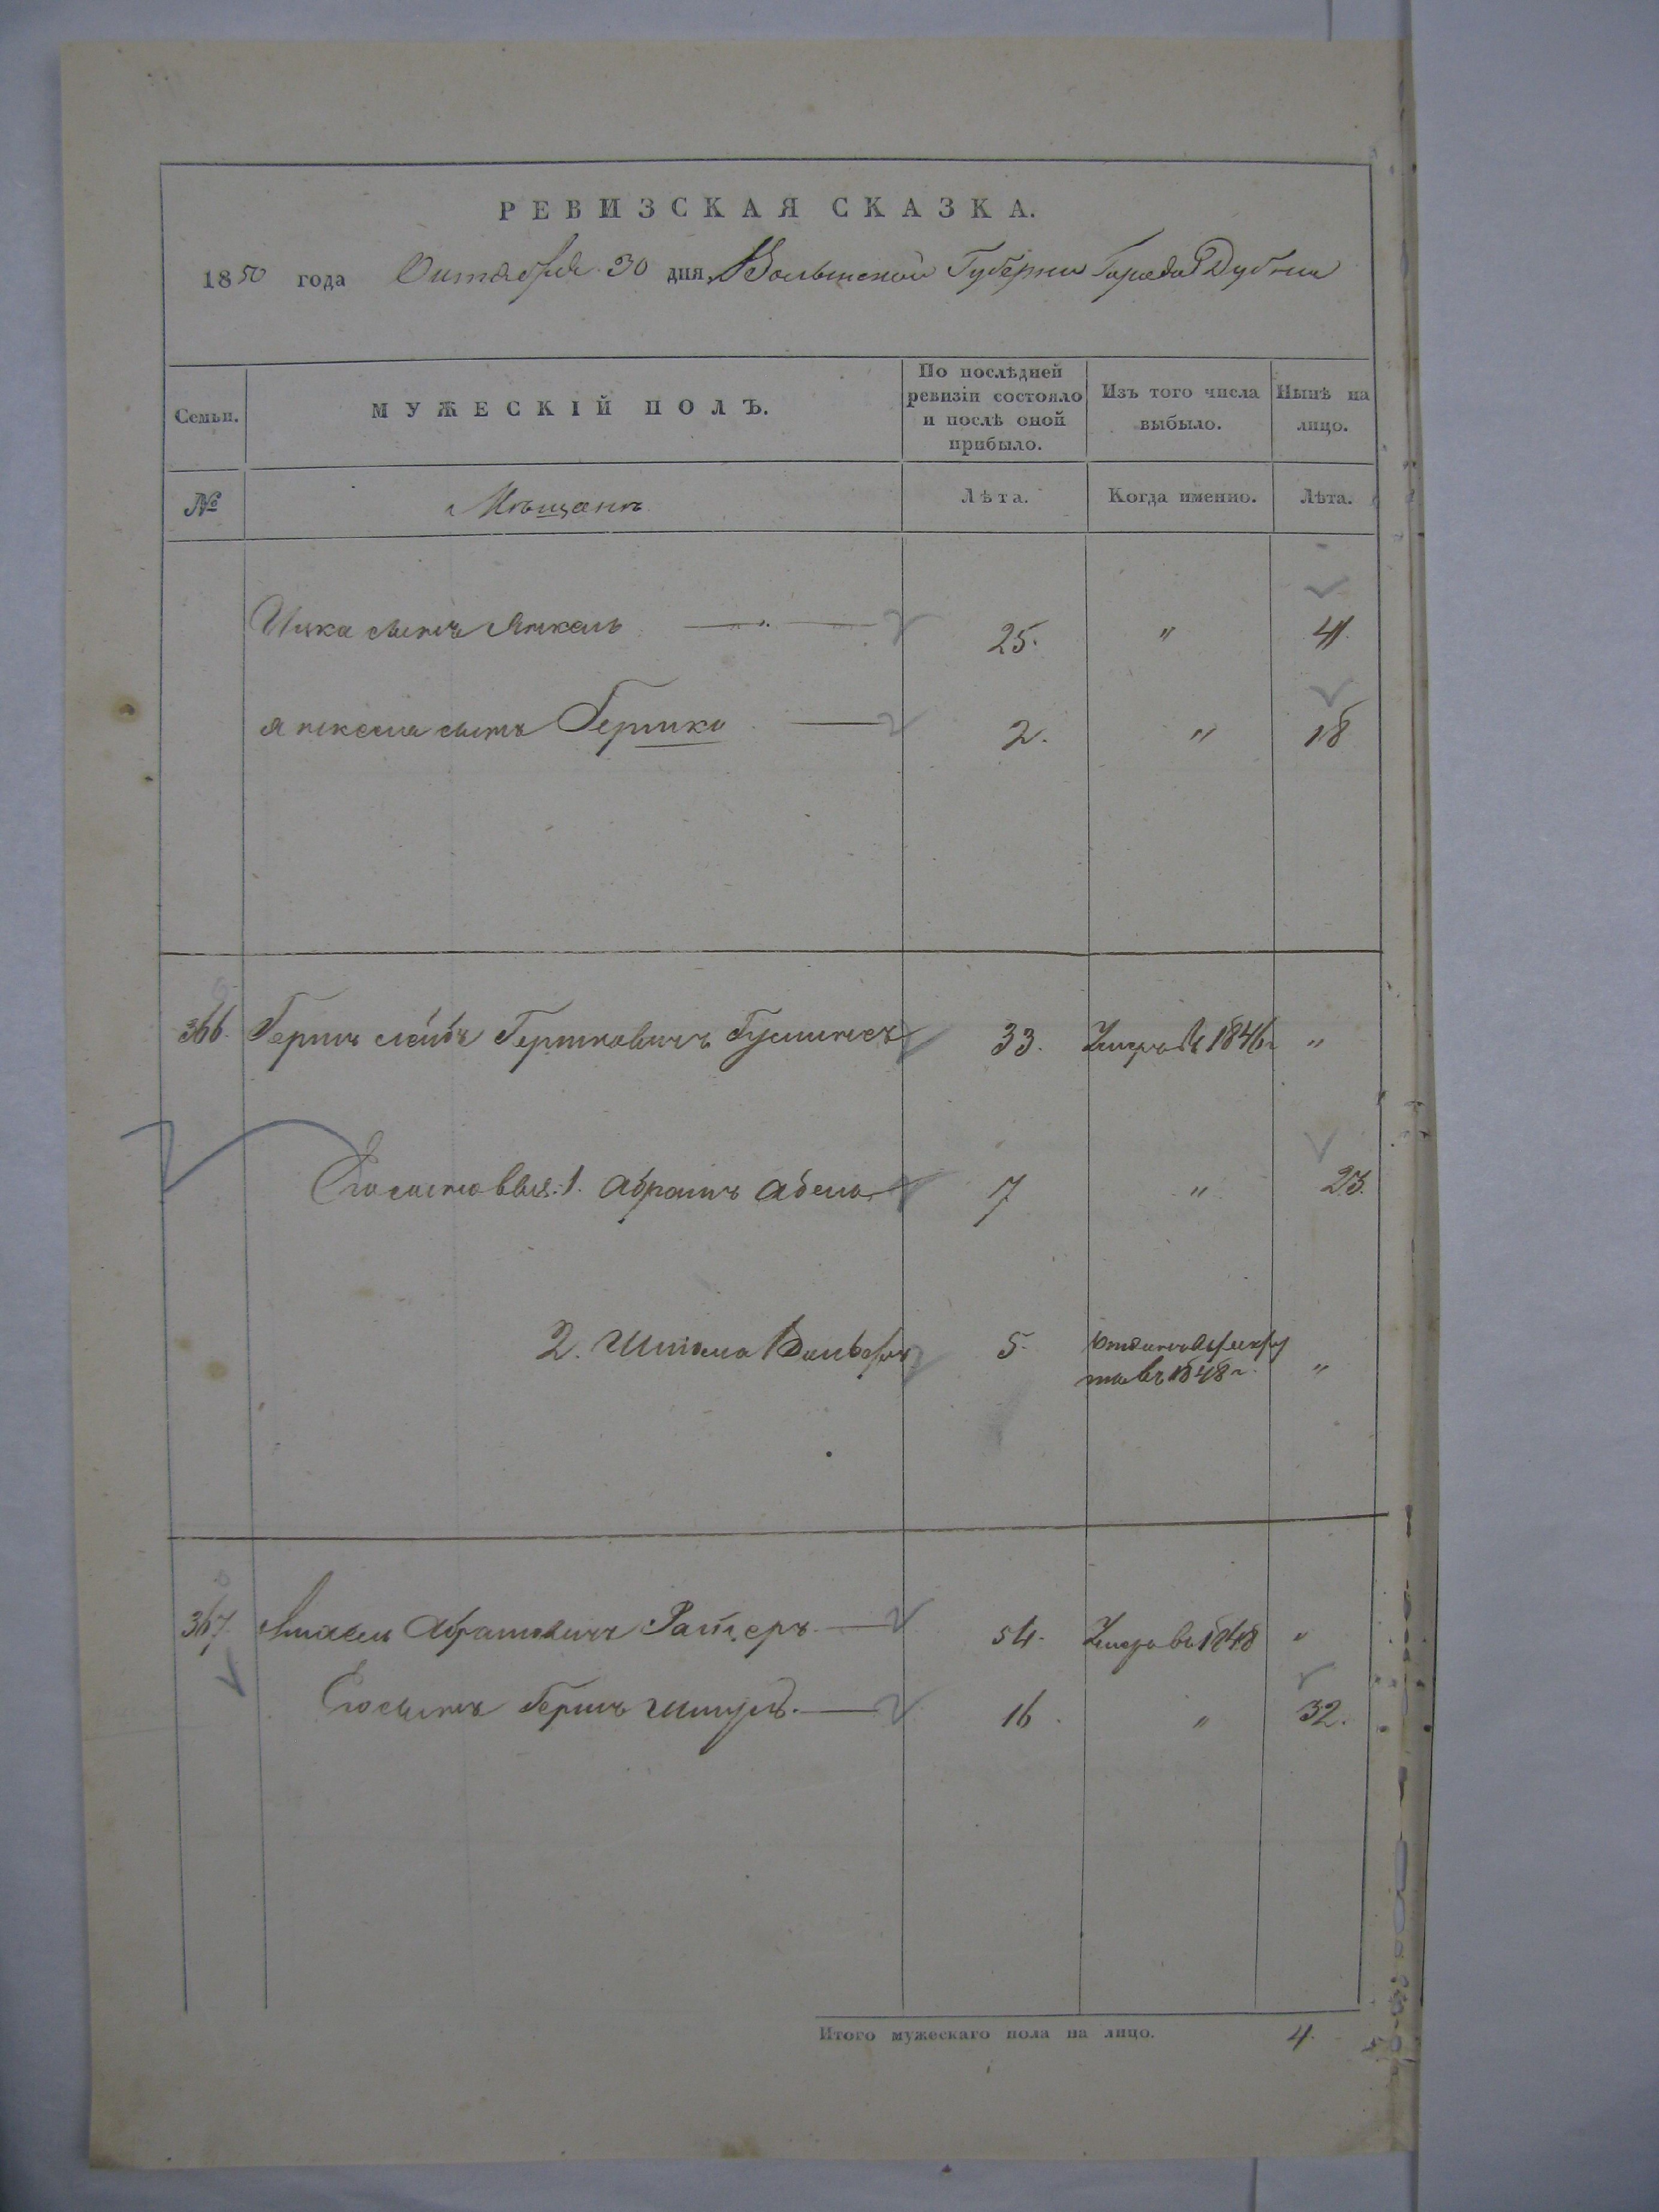 РЕВИЗСКАЯ СКАЗКА.
1850 года Октября 30 дня Волынской Губернии Города Дубна
Семьи.
МУЖЕСКІЙ ПОЛЪ.
По послѣдней
ревизіи состояло
и послѣ оной
прибыло.
Изъ того числа
выбыло.
Нынѣ на
лицо.
№
Мѣщанъ
Лѣта.
Когда именно.
Лѣта.
Ицка сынъ Янкель 25. " 41.
Янкеля сынъ Гершко 2. " 18
366. Гершъ Лейбъ Гершковичъ 33. Умеръ въ 1846г "
Его сыновья: 1. Абрамъ Абель 7 " 23.
2. Вольфъ 5.
Отданъ в рекру
ты въ 1848 г. "
367. Абрамовичъ 54. Умеръ во 1848 "
Его сынъ Гершъ Шмуль. 16. " 32.
Итого мужескаго пола на лицо. 4.